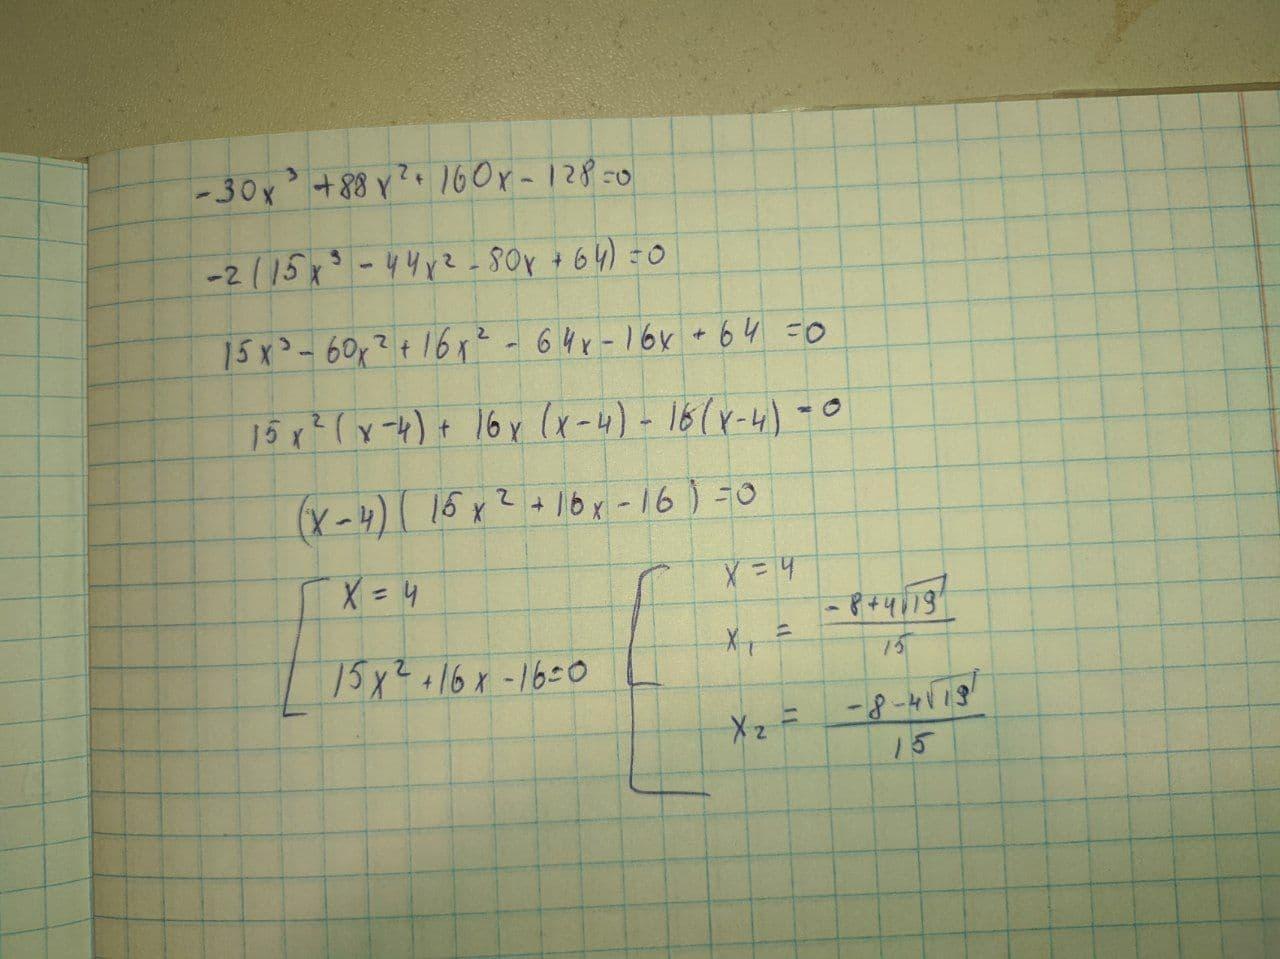 -30x³ + 88x² + 160x - 128 = 0
-2(15x³ - 44x² - 80x + 64) = 0
15x³ - 60x² + 16x² - 64x - 16x + 64 = 0
15x²(x-4) + 16x(x-4) - 16(x-4) = 0
(x-4)(15x² + 16x - 16) = 0
[ x = 4
15x² + 16x - 16 = 0
[ x = 4
x₁ = (-8+4√19)/15
x₂ = (-8-4√19)/15